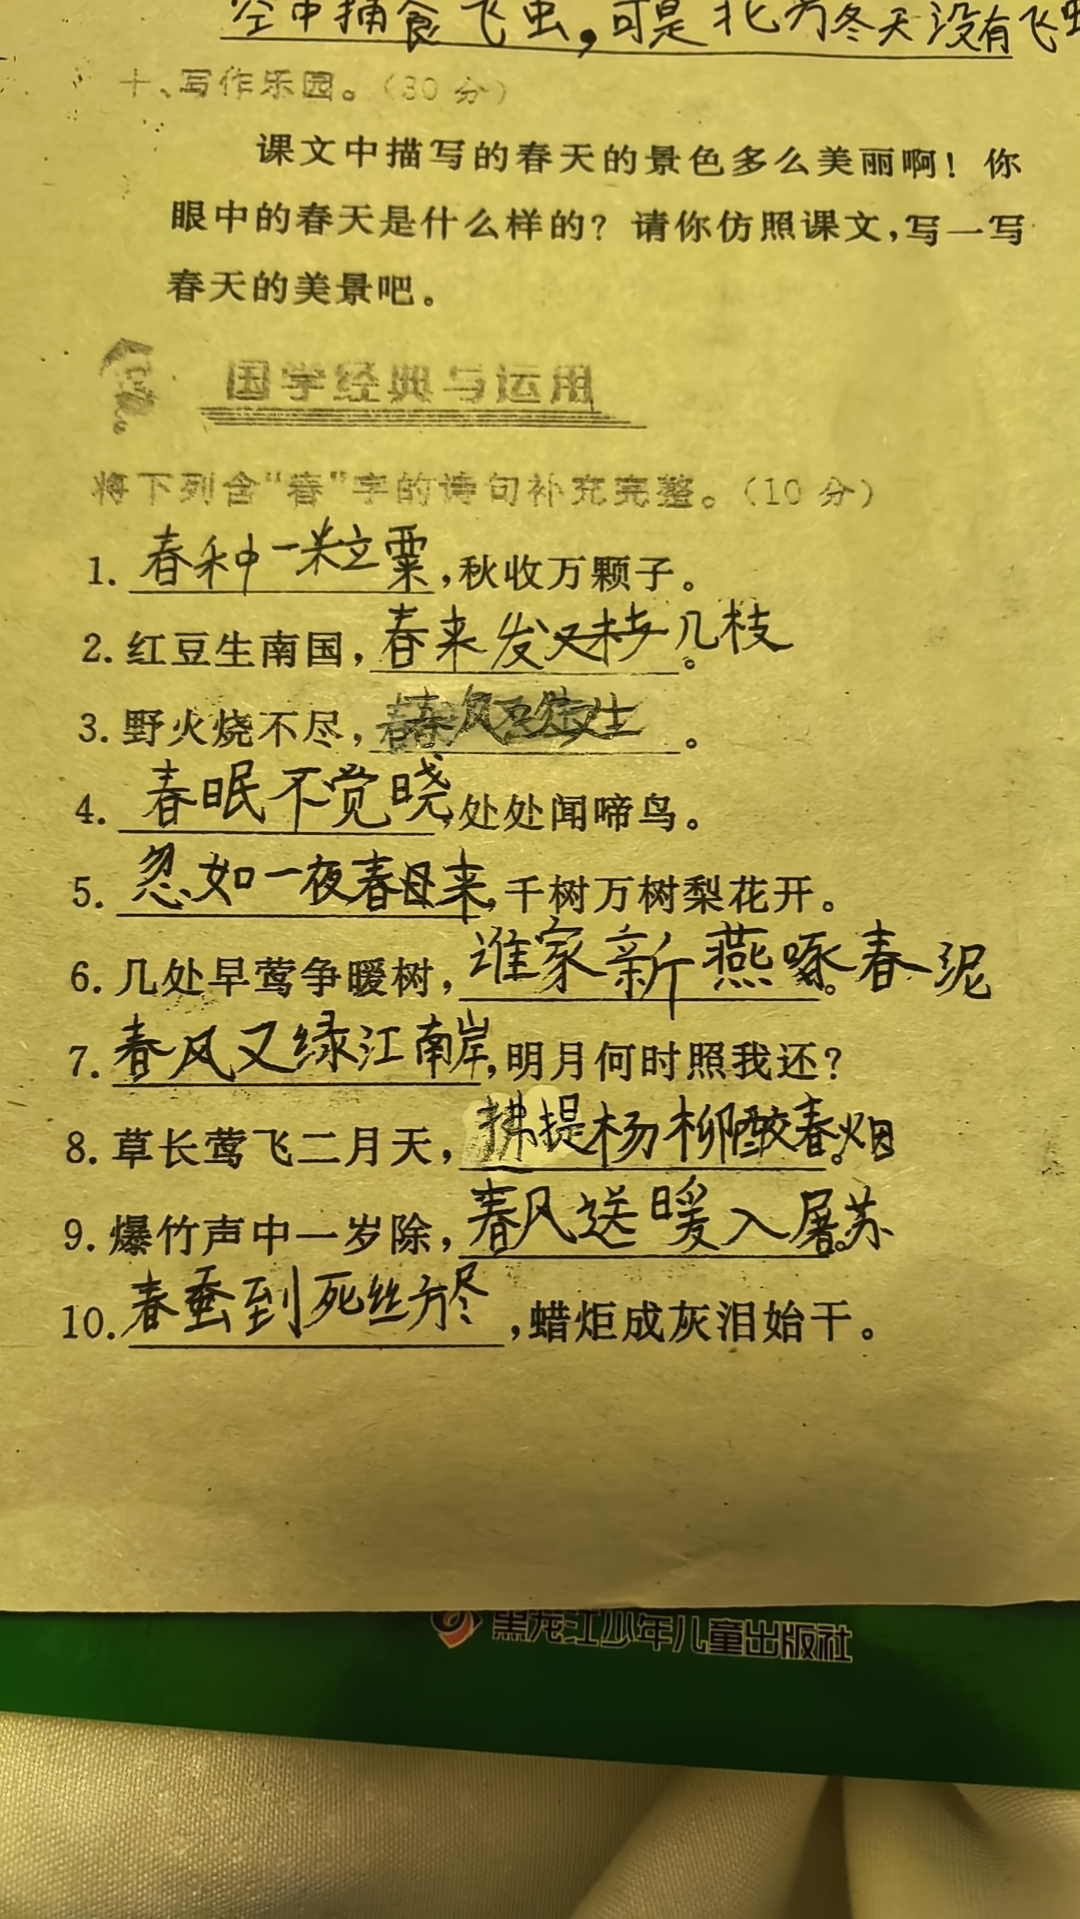 空中捕食飞虫,可是北方冬天没有飞虫
十、写作乐园。(30分)
课文中描写的春天的景色多么美丽啊!你
眼中的春天是什么样的?请你仿照课文,写一写
春天的美景吧。
国学经典与运用
将下列含“春”字的诗句补充完整。(10分)
1. 春种一粒粟,秋收万颗子。
2. 红豆生南国,春来发又枝几枝。
3. 野火烧不尽,春风又生。
4. 春眠不觉晓,处处闻啼鸟。
5. 忽如一夜春母来,千树万树梨花开。
6. 几处早莺争暖树,谁家新燕啄春泥。
7. 春风又绿江南岸,明月何时照我还?
8. 草长莺飞二月天,拂提杨柳醉春烟。
9. 爆竹声中一岁除,春风送暖入屠苏。
10. 春蚕到死丝方尽,蜡炬成灰泪始干。
黑龙江少年儿童出版社